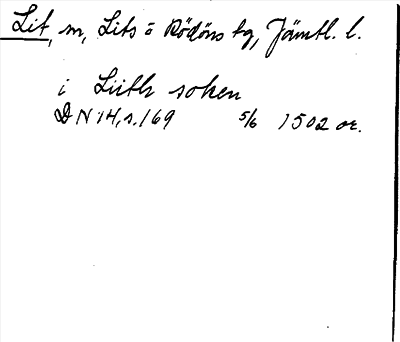 Lit, sn, Lits o Rödöns tg, Jämtl. l.
i Liith soken
DN 14, s. 169 5/6 1502 or.